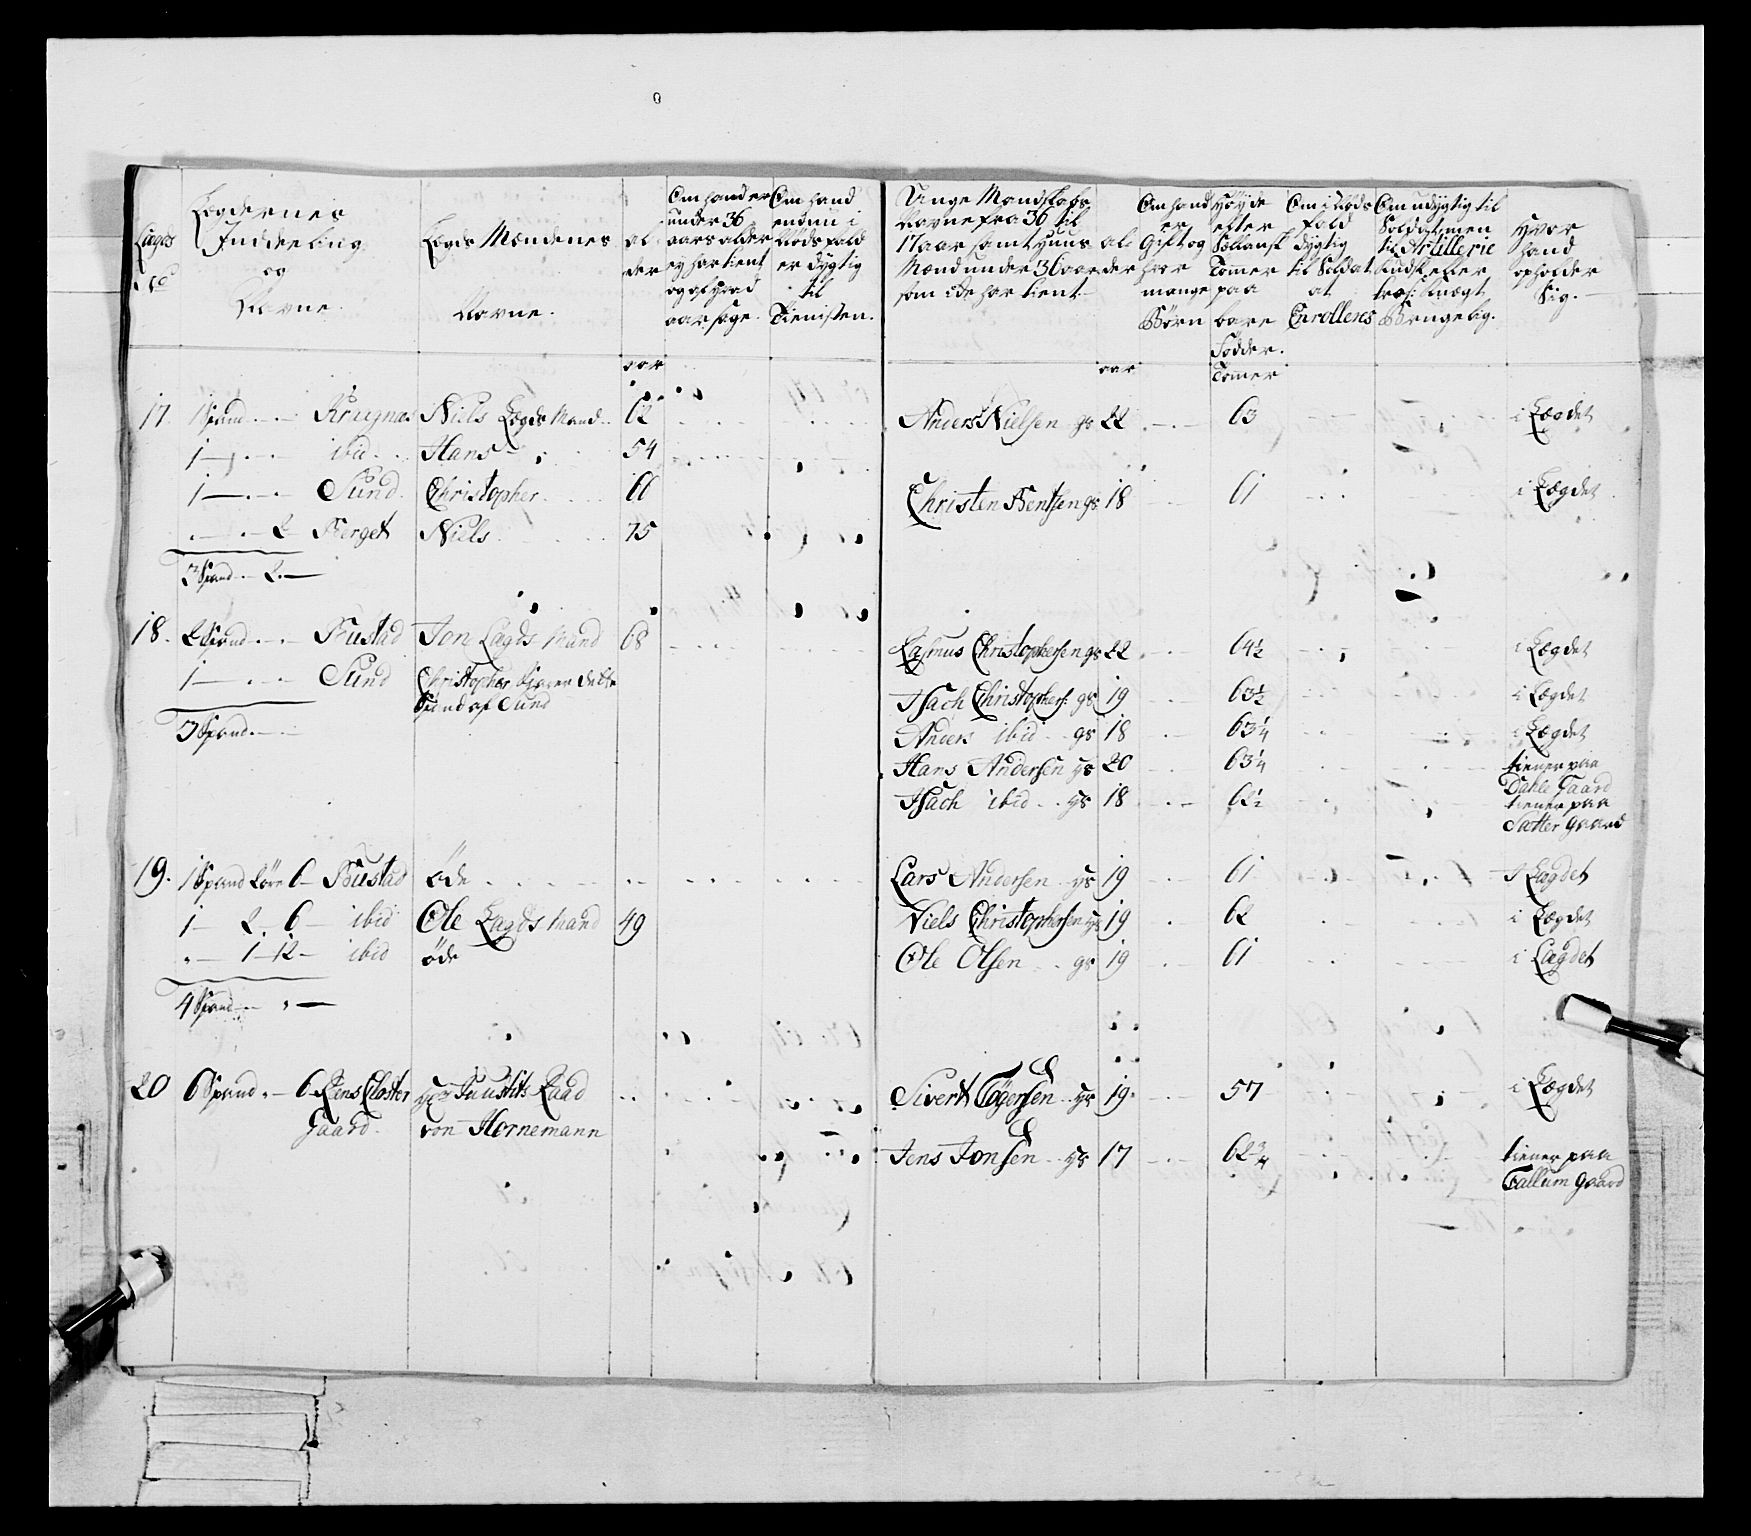 Lægds No
Lægdernes
Inddeling
og
Navne.
Lægds Mændenes
Navne.
al-
der
Om hand er
under 36
aars alder
ey har tient
og af hvad
aarsage.
Om hand
endnu i
Nødsfald
er dygtig
til
Tienisten.
Unge Mandskabs
Navne fra 36 til
17 aar samt huus
Mænd under 36 aar
som icke har tient.
al
der
Om hand
er
Gift og
hvor
mange
Børn
Høyde
efter
Siellansk
Tomer
paa
bare
Födder.
Tomer
Om i Nöds
fald
dygtig
til Soldat
at
Enrolleres
Om udygtig til
Soldat, men
til Artillerie
Kudsk eller
Pros: Knægt
Brugelig.
Hvor
hand
opholder
Sig.
aar
aar
17. 1 Spand Krugnæs Niels Lægds Mand 62 Anders Nielsen gs 22 63 i Lægdet
1 ibid Hans 54
1 Sund Christopher 60 Christen Bentsen gs 18 61 i Lægdet
2 Berget Niels 75
3 Spand 2
18. 2 Spand Bustad Jon Lægds Mand 68 Rasmus Christophersen gs 22 64½ i Lægdet
1 Sund Christopher svarer dette
Spand af Sund
Isach Christophers: gs 19 63½ i Lægdet
3 Spand
Anders ibid gs 18 63¼ i Lægdet
Hans Andersen ys 20 63¼ tiener paa
Dahle Gaard
Isach ibid ys 18 62½ tiener paa
Sætter gaard
19. 1 Spand 2 öre 6 Bustad öde Lars Andersen ys 19 61 I Lægdet
1 2 6 ibid Ole Lægds Mand 49 Niels Christophersen ys 19 62 i Lægdet
1 12 ibid öde Ole Olsen gs 19 61 i Lægdet
4 Spand
20 6 Spand 6 Rens Closter
Gaard
Hr Justits Raad
von Hornemann
Sivert Tögersen ys 19 57 i Lægdet
Jens Jonsen ys 17 62¾ tiener paa
Tallum Gaard